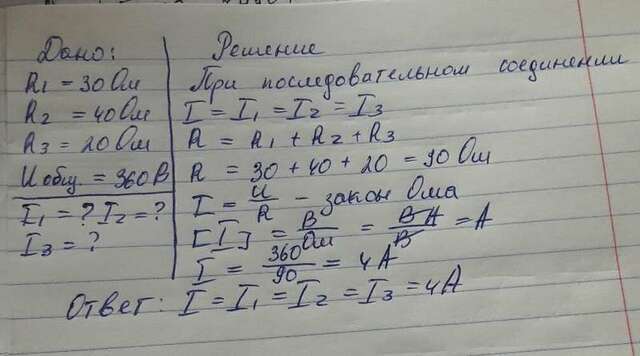 Дано:
R1 = 30 Ом
R2 = 40 Ом
R3 = 20 Ом
U общ = 360 В
I1 = ? I2 = ?
I3 = ?
Решение
При последовательном соединении
I = I1 = I2 = I3
R = R1 + R2 + R3
R = 30 + 40 + 20 = 90 Ом
I = U/R - закон Ома
[I] = В/Ом = В А/В = А
I = 360/90 = 4 А
Ответ: I = I1 = I2 = I3 = 4 А